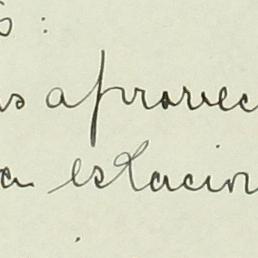 s:
os aprovec
a estacion